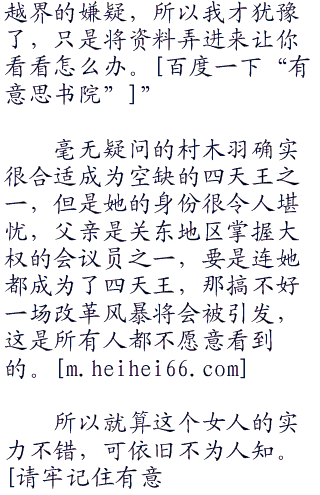 越界的嫌疑，所以我才犹豫
了，只是将资料弄进来让你
看看怎么办。[百度一下“有
意思书院”]”
毫无疑问的村木羽确实
很合适成为空缺的四天王之
一，但是她的身份很令人堪
忧，父亲是关东地区掌握大
权的会议员之一，要是连她
都成为了四天王，那搞不好
一场改革风暴将会被引发，
这是所有人都不愿意看到
的。[m.heihei66.com]
所以就算这个女人的实
力不错，可依旧不为人知。
[请牢记住有意